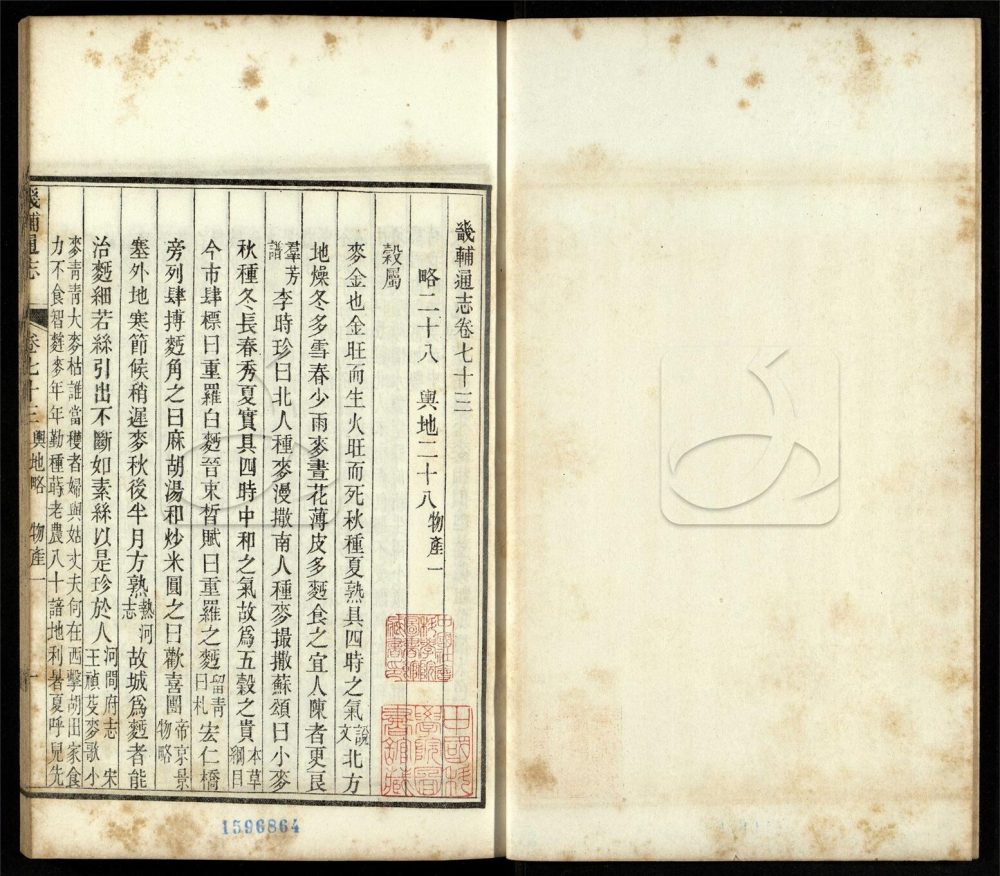 畿輔通志卷七十三
略二十八 輿地二十八 物產一
穀屬
麥金也金旺而生火旺而死秋種夏熟具四時之氣說文北方
地燥冬多雪春少雨麥晝花薄皮多麪食之宜人陳者更良
羣芳譜李時珍曰北人種麥漫撒南人種麥撮撒蘇頌曰小麥
秋種冬長春秀夏實具四時中和之氣故爲五穀之貴本草綱目
今市肆標曰重羅白麪晉束皙賦曰重羅之麪留青日札宏仁橋
旁列肆摶麪角之曰麻胡湯和炒米圓之曰歡喜團帝京景物略
塞外地寒節候稍遲麥秋後半月方熟熱河志故城爲麪者能
治麪細若絲引出不斷如素絲以是珍於人河間府志 宋王禎芟麥歌小
麥青青大麥枯誰當穫者婦與姑丈夫何在西擊胡出家食
力不食智麰麥年年勤種蒔老農八十諳地利暑夏呼兒先
畿輔通志 卷七十三 輿地略 物產一 一
1596864